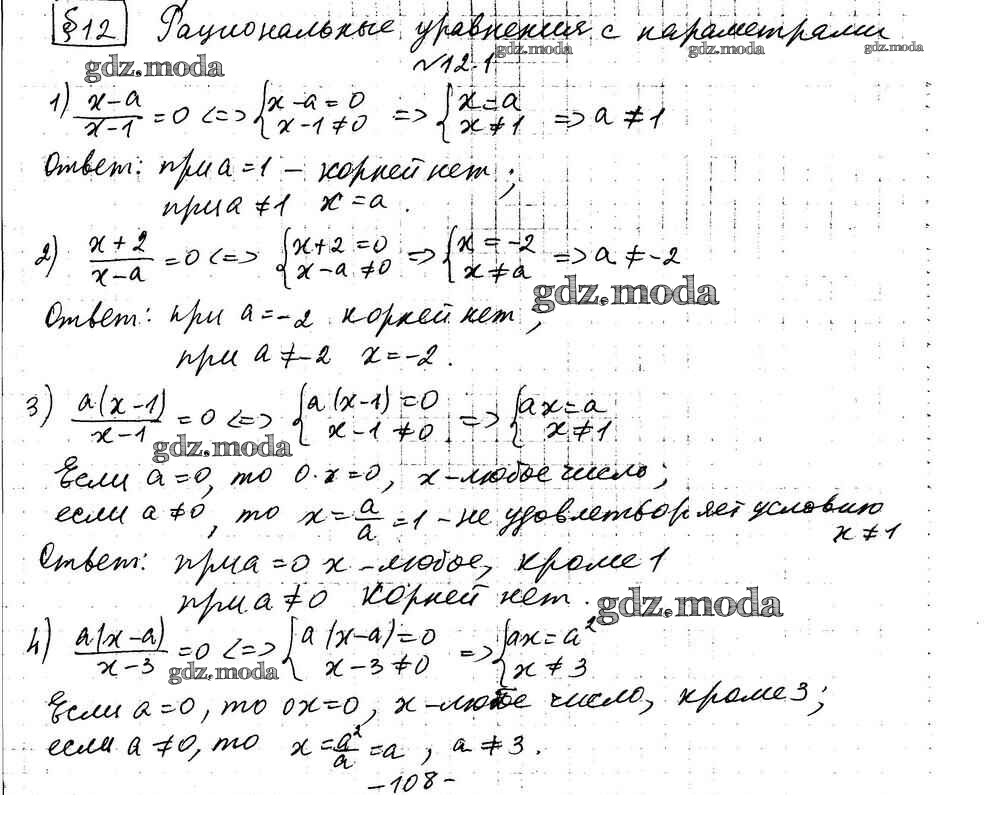 §12 Рациональные уравнения с параметрами
gdz.moda gdz.moda gdz.moda gdz.moda
№12.1
1) (x-a)/(x-1) = 0 <=> { x-a=0; x-1≠0 => { x=a; x≠1 => a≠1
Ответ: при a=1 – корней нет;
при a≠1 x=a.
2) (x+2)/(x-a) = 0 <=> { x+2=0; x-a≠0 => { x=-2; x≠a => a≠-2
gdz.moda
Ответ: при a=-2 корней нет,
при a≠-2 x=-2.
3) a(x-1)/(x-1) = 0 <=> { a(x-1)=0; x-1≠0 => { ax=a; x≠1
gdz.moda
Если a=0, то 0·x=0, x-любое число;
если a≠0, то x=a/a=1 - не удовлетворяет условию
x≠1
Ответ: при a=0 x-любое, кроме 1
при a≠0 корней нет.
gdz.moda
4) a(x-a)/(x-3) = 0 <=> { a(x-a)=0; x-3≠0 => { ax=a²; x≠3
gdz.moda
Если a=0, то 0x=0, x-любое число, кроме 3;
если a≠0, то x=a²/a=a, a≠3.
-108-